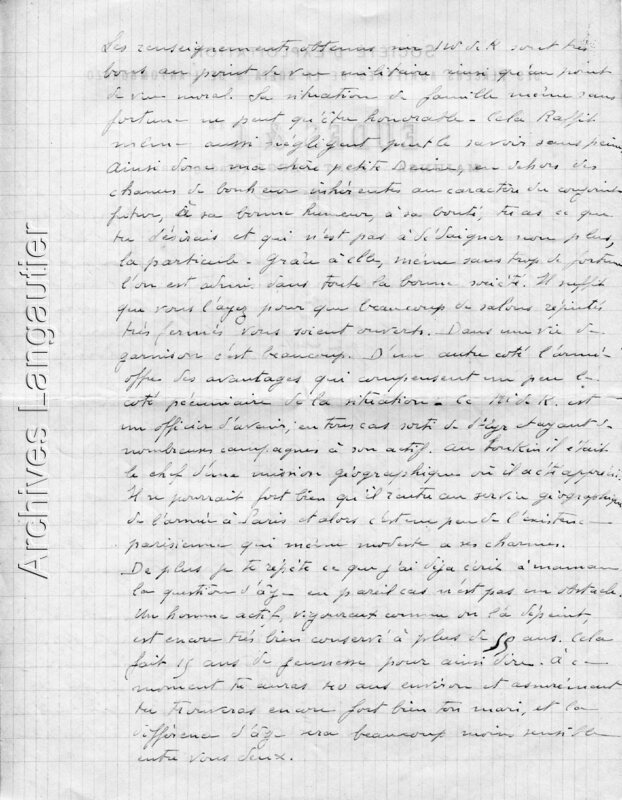 Les renseignements obtenus sur M de K sont très
bons au point de vue militaire ainsi qu'au point
de vue moral. Sa situation de famille même sans
fortune ne peut qu'être honorable - Cela Raffit
même aussi négligent peut le savoir sans peine
Ainsi donc ma chère petite Denise, en dehors des
chances de bonheur inhérentes au caractère du conjoint
futur, à sa bonne humeur, à sa bonté, tu as ce que
tu désirais et qui n'est pas à dédaigner non plus,
la particule - Grâce à elle, même sans trop de fortune
l'on est admis dans toute la bonne société. Il suffit
que vous l'ayez pour que beaucoup de salons réputés
très fermés vous soient ouverts. Dans une vie de
garnison c'est beaucoup. D'un autre coté l'armée
offre des avantages qui compensent un peu le
coté pécuniaire de la situation - Ce M de K. est
un officier d'avenir, en tous cas sorti de St Cyr et ayant de
nombreuses campagnes à son actif. Au Tonkin il était
le chef d'une mission géographique où il a été apprécié.
Il se pourrait fort bien qu'il rentre au service géographique
de l'armée à Paris et alors c'est un peu de l'existence
parisienne qui même modeste a ses charmes.
De plus je te répète ce que j'ai déja écrit à maman
la question d'âge en pareil cas n'est pas un obstacle.
Un homme actif, vigoureux comme on l'a dépeint,
est encore très bien conservé à plus de 55 ans. Cela
fait 15 ans de jeunesse pour ainsi dire. À ce
moment tu auras 40 ans environ et assurément
tu trouveras encore fort bien ton mari, et la
différence d'âge sera beaucoup moins sensible
entre vous deux.
Archives Langautier